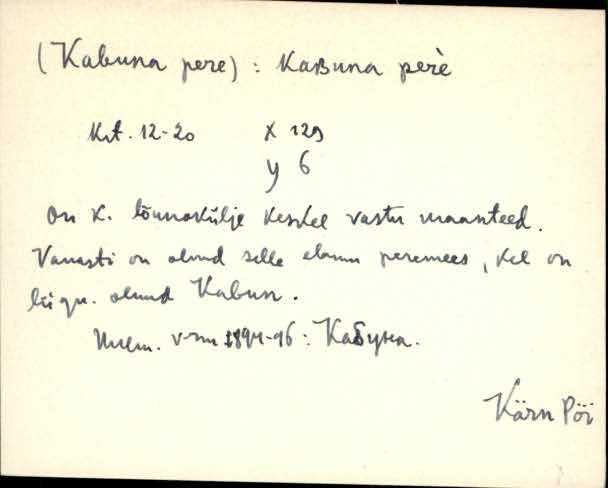 (Kabuna pere) : Kaʙuna perè
Krt. 12-20 x 129
y 6
On K. lõunakülje keskel vastu maanteed.
Vanasti on olnud selle elanu peremees, kel on
liign. olnud Kabun.
1894-96: Кабуна.
Kärn Pöi